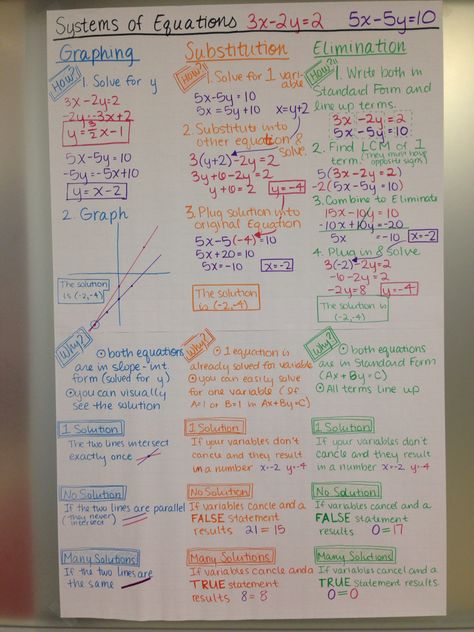 Systems of Equations 3x-2y=2 5x-5y=10
Graphing
How?
1. Solve for y
3x-2y=2
-2y=-3x+2
y=3/2x-1
5x-5y=10
-5y=-5x+10
y=x-2
2. Graph
The solution
is (-2,-4)
Why?
both equations
are in slope-int
form (solved for y)
you can visually
see the solution
1 Solution
The two lines intersect
exactly once
No Solution
If the two lines are parallel
(they never intersect)
Many Solutions
If the two lines are
the same
Substitution
How?!
1. Solve for 1 vari-
able
5x-5y=10
5x=5y+10 x=y+2
2. Substitute into
other equation &
solve.
3(y+2)-2y=2
3y+6-2y=2
y+6=2 y=-4
3. Plug solution into
original Equation
5x-5(-4)=10
5x+20=10
5x=-10 x=-2
The solution
is (-2,-4)
Why?
1 equation is
already solved for variable
you can easily solve
for one variable (if
A=1 or B=1 in Ax+By=C)
1 Solution
If your variables don't
cancle and they result
in a number x=-2 y=-4
No Solution
If variables cancle and a
FALSE statement
results 21=15
Many Solutions
If variables cancle and a
TRUE statement
results 8=8
Elimination
How?!
1. Write both in
Standard Form and
line up terms.
3x -2y=2
5x -5y=10
2. Find LCM of 1
term. (They must have
opposite signs)
5(3x-2y=2)
-2(5x-5y=10)
3. Combine to Eliminate
15x-10y=10
-10x+10y=-20
5x =-10 x=-2
4. Plug in & Solve
3(-2)-2y=2
-6-2y=2
-2y=8 y=-4
The solution is
(-2,-4)
Why?
both equations
are in Standard Form
(Ax+By=C)
All terms line up
1 Solution
If your variables don't
cancle and they result
in a number x=-2 y=-4
No Solution
If variables cancel and a
FALSE statement
results 0=17
Many Solutions
If variables cancel and a
TRUE statement results
0=0